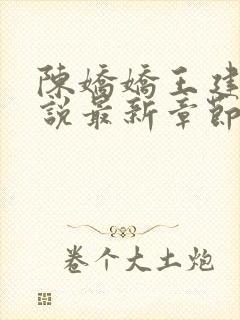 陳嬌嬌王建
說最新章節
卷个大土炮